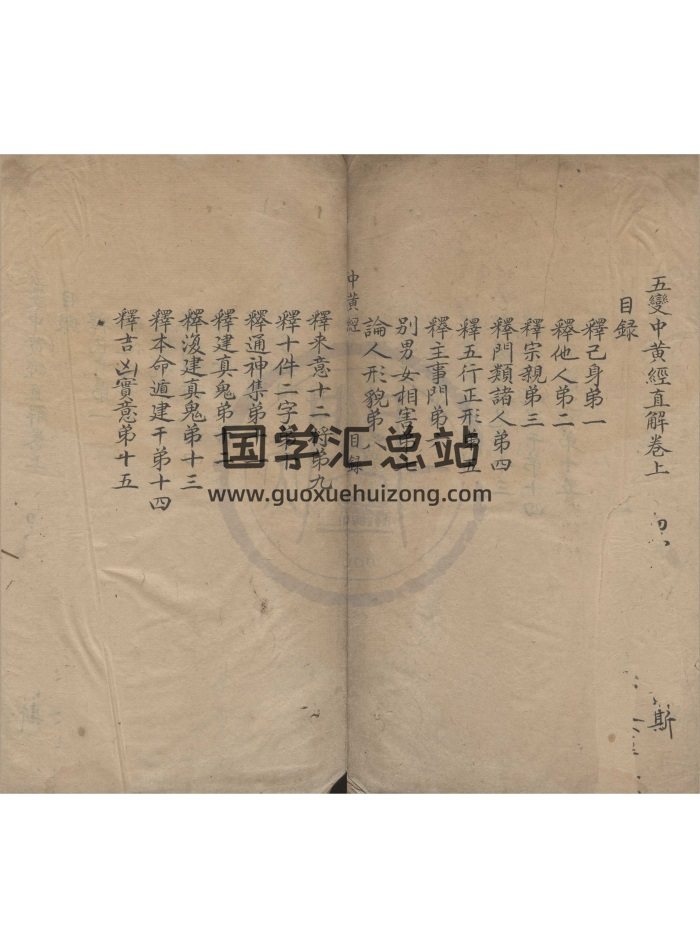 五變中黃經直解卷上
目録
釋己身第一
釋他人第二
釋宗親第三
釋門類諸人第四
釋五行正形第五
釋主事門第六
別男女相害第七
論人形貌第八
中黃經
目録
釋來意十二將第九
釋十件二字第十
釋通神集第十一
釋建真鬼第十二
釋復建真鬼第十三
釋本命遁建干第十四
釋吉凶實意第十五
斯
国学汇总站
www.guoxuehuizong.com